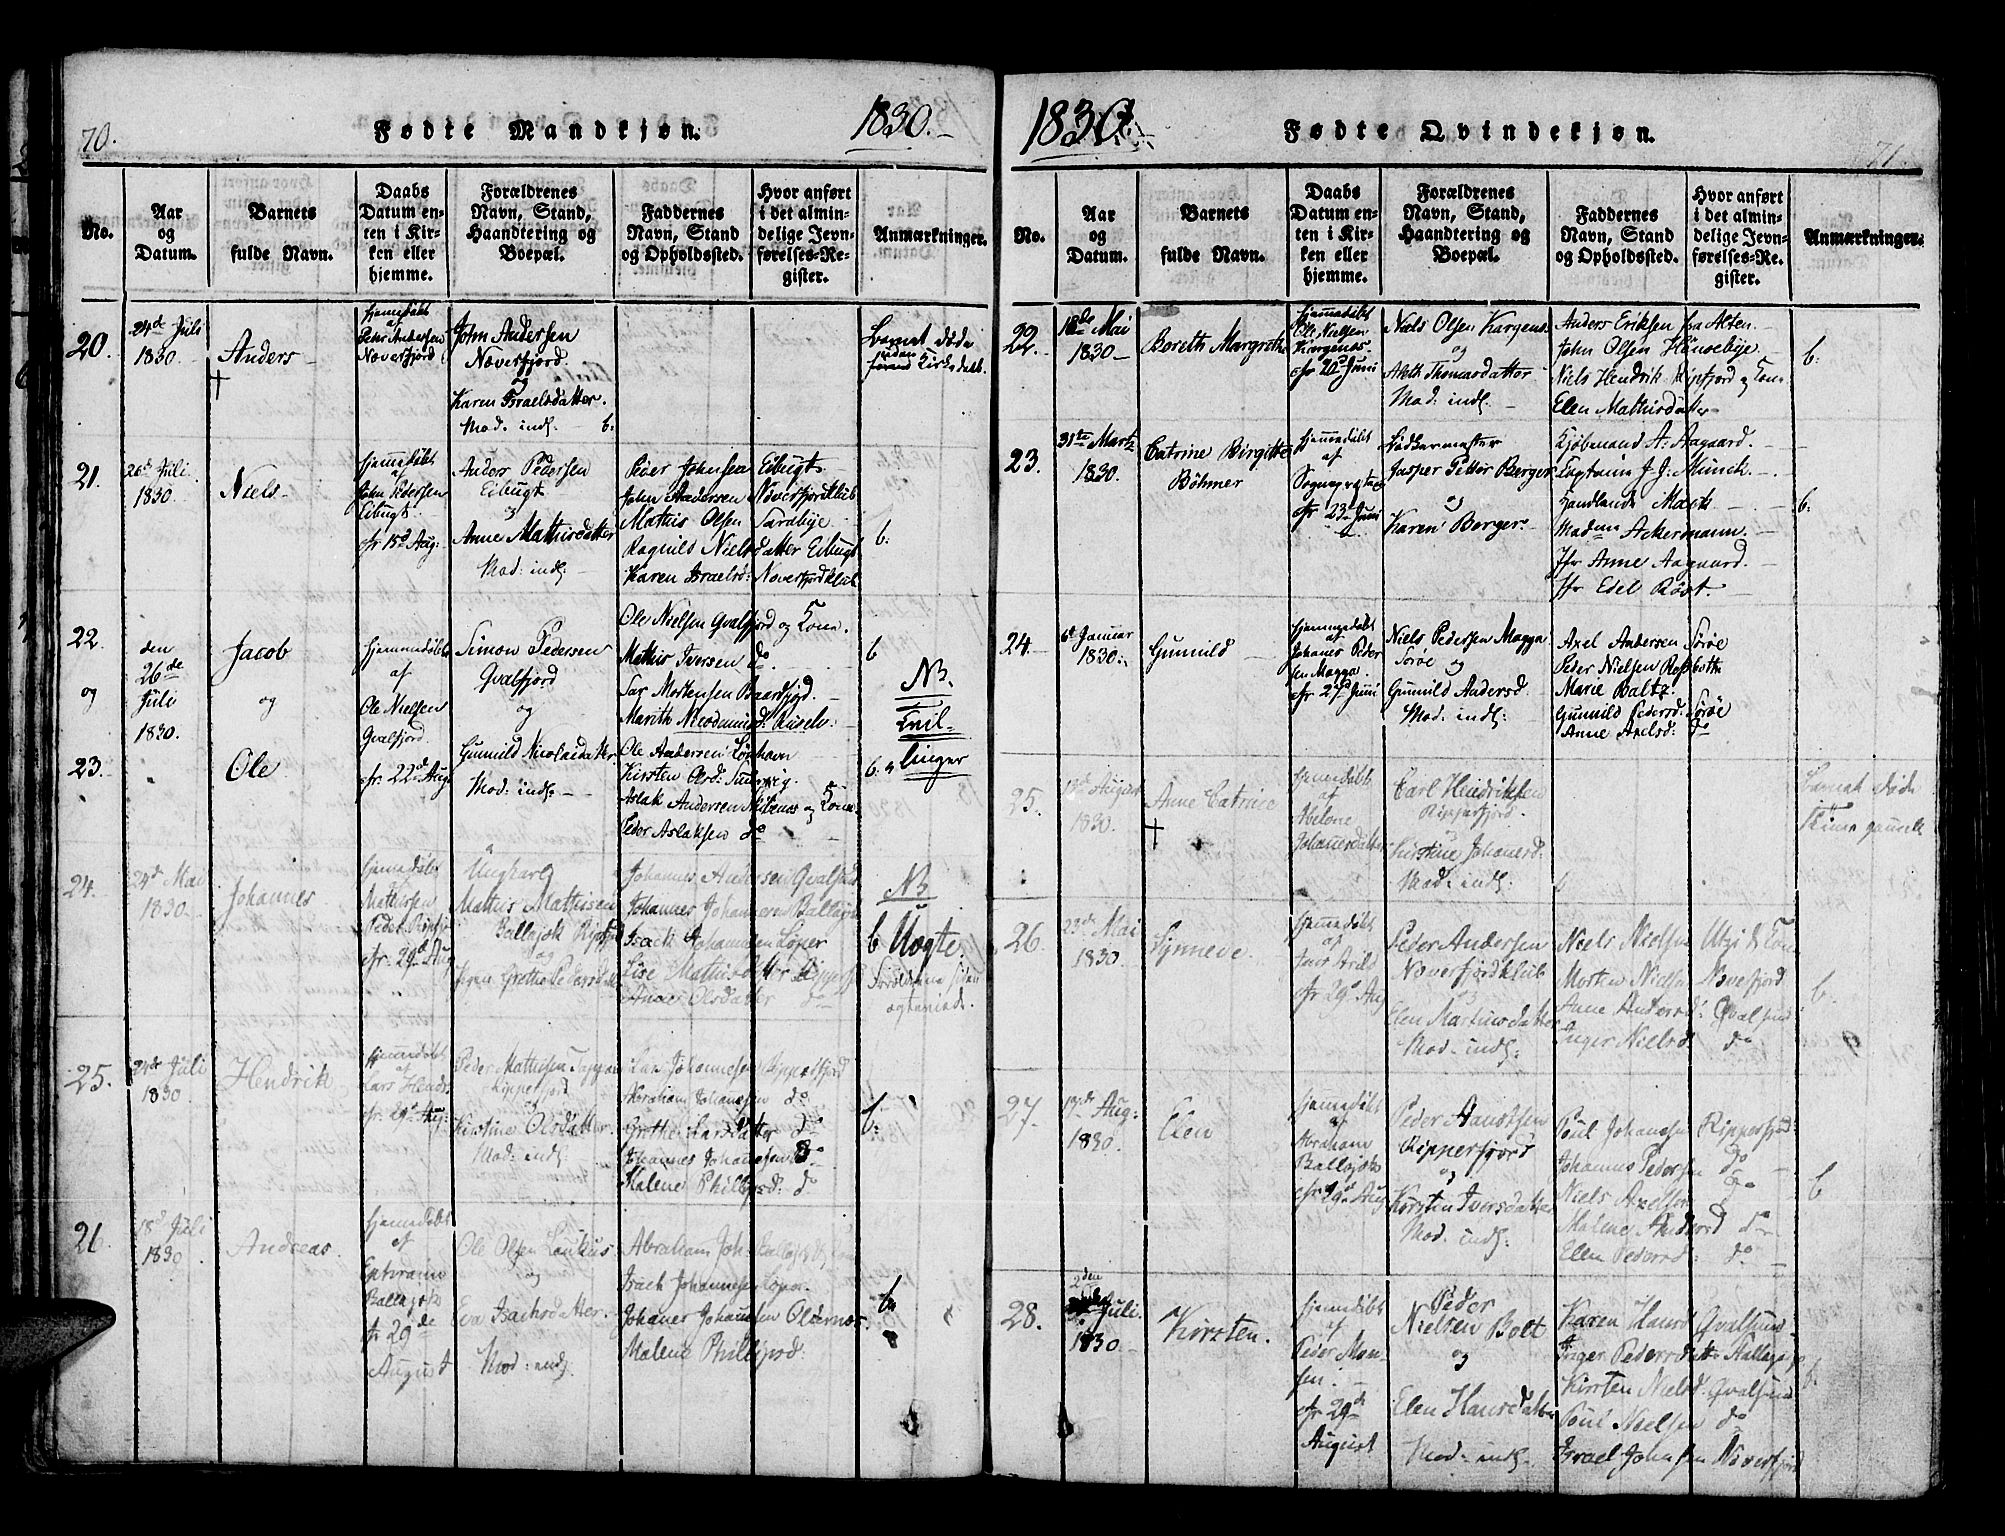 70.
Fødte Mandkjøn.
1830.
No.
Aar og Datum.
Barnets fulde Navn.
Daabs Datum enten i Kirken eller hjemme.
Forældrenes Navn, Stand, Haandtering og Boepæl.
Faddernes Navn, Stand og Opholdssted.
Hvor anført i det almindelige Jevnførelses-Register.
Anmærkninger.
20.
24de Juli
1830.
Anders
†
hjemmedøbt
af
Peter Andersen
Noverfjord
John Andersen
Noverfjord
og
Karen Israelsdatter.
Mod: indl:
b:
Barnet døde
Kirkedaab.
21.
1830.
Niels
hjemmedøbt
af
John Pedersen
Eibugt
cfr 15d Aug:
Anders Pedersen
Eibugt
og
Anne Mathisdatter
Mod: indl:
Peder Johnsen Eibugt
John Andersen Noverfjordklub
Mathis Olsen Sardbye
Ragnild Nielsdatter Eibugt
Karen Israelsd: Noverfjordklub
b:
22.
og
23.
den
26de
Juli
1830.
Jacob
og
Ole
hjemmedøbt
af
Ole Nielsen
Qvalfjord
cfr 22d Aug
Simon Pedersen
Qvalfjord
og
Gunnild Nicolaidatter
Mod: indl:
Ole Nielsen Qvalfjord og Kone.
Mathis Iversen do
Lar Mortensen Baarfjord.
Ole Andersen
Kirsten Olsd:
Aslak Andersen og Kone
Peder Aslaksen do
b
b:
NB.
Tvil-
linger
24.
24d Mai
1830.
Johannes
hjemmedøbt
Mathisen
cfr. 29d Aug
Ungkarl
Mathis Mathisen
og
Johannes Andersen
Johannes Johannesen
Isack Johannesen Løper
Lise Mathisdatter
Olsdatter do
NB
b Uægte.
25.
24de Juli
1830
Hendrik
hjemmedøbt
af
Lars Hends.
cfr 29d Aug:
Peder Mathisen
Ripperfjord
og
Kirstine Olsdatter.
Mod: indl:
Lars Johannesen Ripperfjord
Abraham Johannesen do
Grethe Larsdatter do
Johannes Johannesen do
Malene Philipsd: do
b:
26.
18d Juli
1830
Andreas.
hjemmedøbt
af
Ephraim
cfr 29de
August
Ole Olsen
og
Eva Isachsdatter.
Mod: indl:
Abraham Joh:
Isack Johannesen Løper
Johannes Johannesen
Malene Philipsd:
b
1830.
Fødte Qvindekjøn.
71.
No.
Aar og Datum.
Barnets fulde Navn.
Daabs Datum enten i Kirken eller hjemme.
Forældrenes Navn, Stand, Haandtering og Boepæl.
Faddernes Navn, Stand og Opholdssted.
Hvor anført i det almindelige Jevnførelses-Register.
Anmærkninger.
22.
18de Mai
1830
Boreth Margrethe
hjemmedøbt
Ole Nielsen
Kargenes
cfr 20d Juni
Niels Olsen Kargenes
og
Aleth Thomasdatter
Mod: indl:
Anders Eriksen fra Alten
John Olsen Hønsebye.
Niels Hendrik Ripfjord og Kone
Elen Mathisdatter
b:
23.
31te Marts
1830.
Catrine Birgitte
Bøhmer
hjemmedøbt
af
Sognepræsten
cfr 23d Juni
Jasper Petter Berger
og
Karen Berger
Kjøbmand A: Aagaard.
J. J. Münck.
Madm Ackermann.
Jfr Anne Aagaard.
Jfr Edel Røst.
b:
24.
6d Januar
1830.
Gunnild
hjemmedøbt
af
Johanes Peder
sen Magga.
cfr 27d Juni
Niels Pedersen Magga
Sørøe
og
Gunnild Andersd.
Mod: indl:
Axel Andersen Sørøe
Peder Nielsen
Marie Baltz.
Gunnild Pedersd: Sørøe
Anne Axelsd: do
25.
August
1830.
Anne Catrine
†
hjemmedøbt
af
Abelone
Johannesdatter
Carl Hendriksen
Ripperfjord.
og
Kirstine Johanesd.
Mod: indl:
Barnet døde
26.
23de Mai
1830.
Synneve
hjemmedøbt
af
cfr. 29d Aug
Peder Andersen
Noverfjordklub
og
Elen Martinsdatter
Mod: indl:
Niels Nielsen
Morten Nielsen Noverfjord
Anne Andersd: Qvalsund
Inger Nielsd do
b.
27.
Aug:
1830.
Elen
hjemmedøbt
af
Abraham
cfr. 29d Aug
Peder
Ripperfjord
og
Kirsten Iversdatter
Mod: indl:
Poul Johansen Ripperfjord
Johannes Pedersen do
Niels Axelsen do
Malene Andersd do
Elen Pedersd: do
b
28.
2den
Juli.
1830.
Kirsten.
hjemmedøbt
af
Peder Mon-
sen.
cfr 29d
August
Peder
Nielsen Bolt
og
Elen Hansdatter
Mod: indl:
Karen Hansd Qvalsund
Inger Pedersdatter
Kirsten Nielsd: Qvalsund
Poul Nielsen do
Israel Johnsen Noverfjord
b: